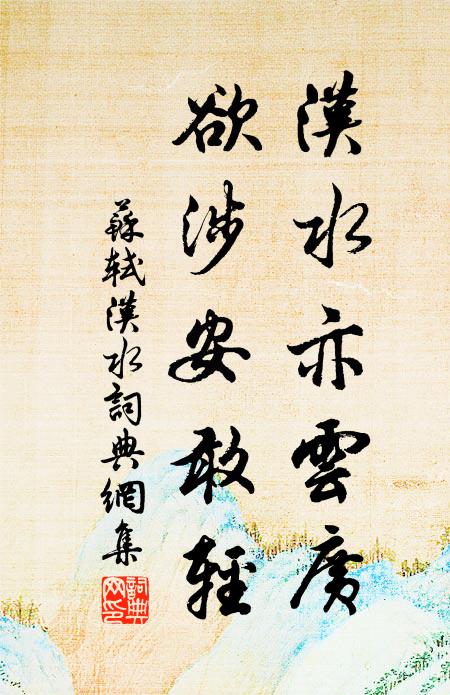 漢水亦雲廣
欲涉安敢輕
蘇軾漢水詞典網集
詞典
网印